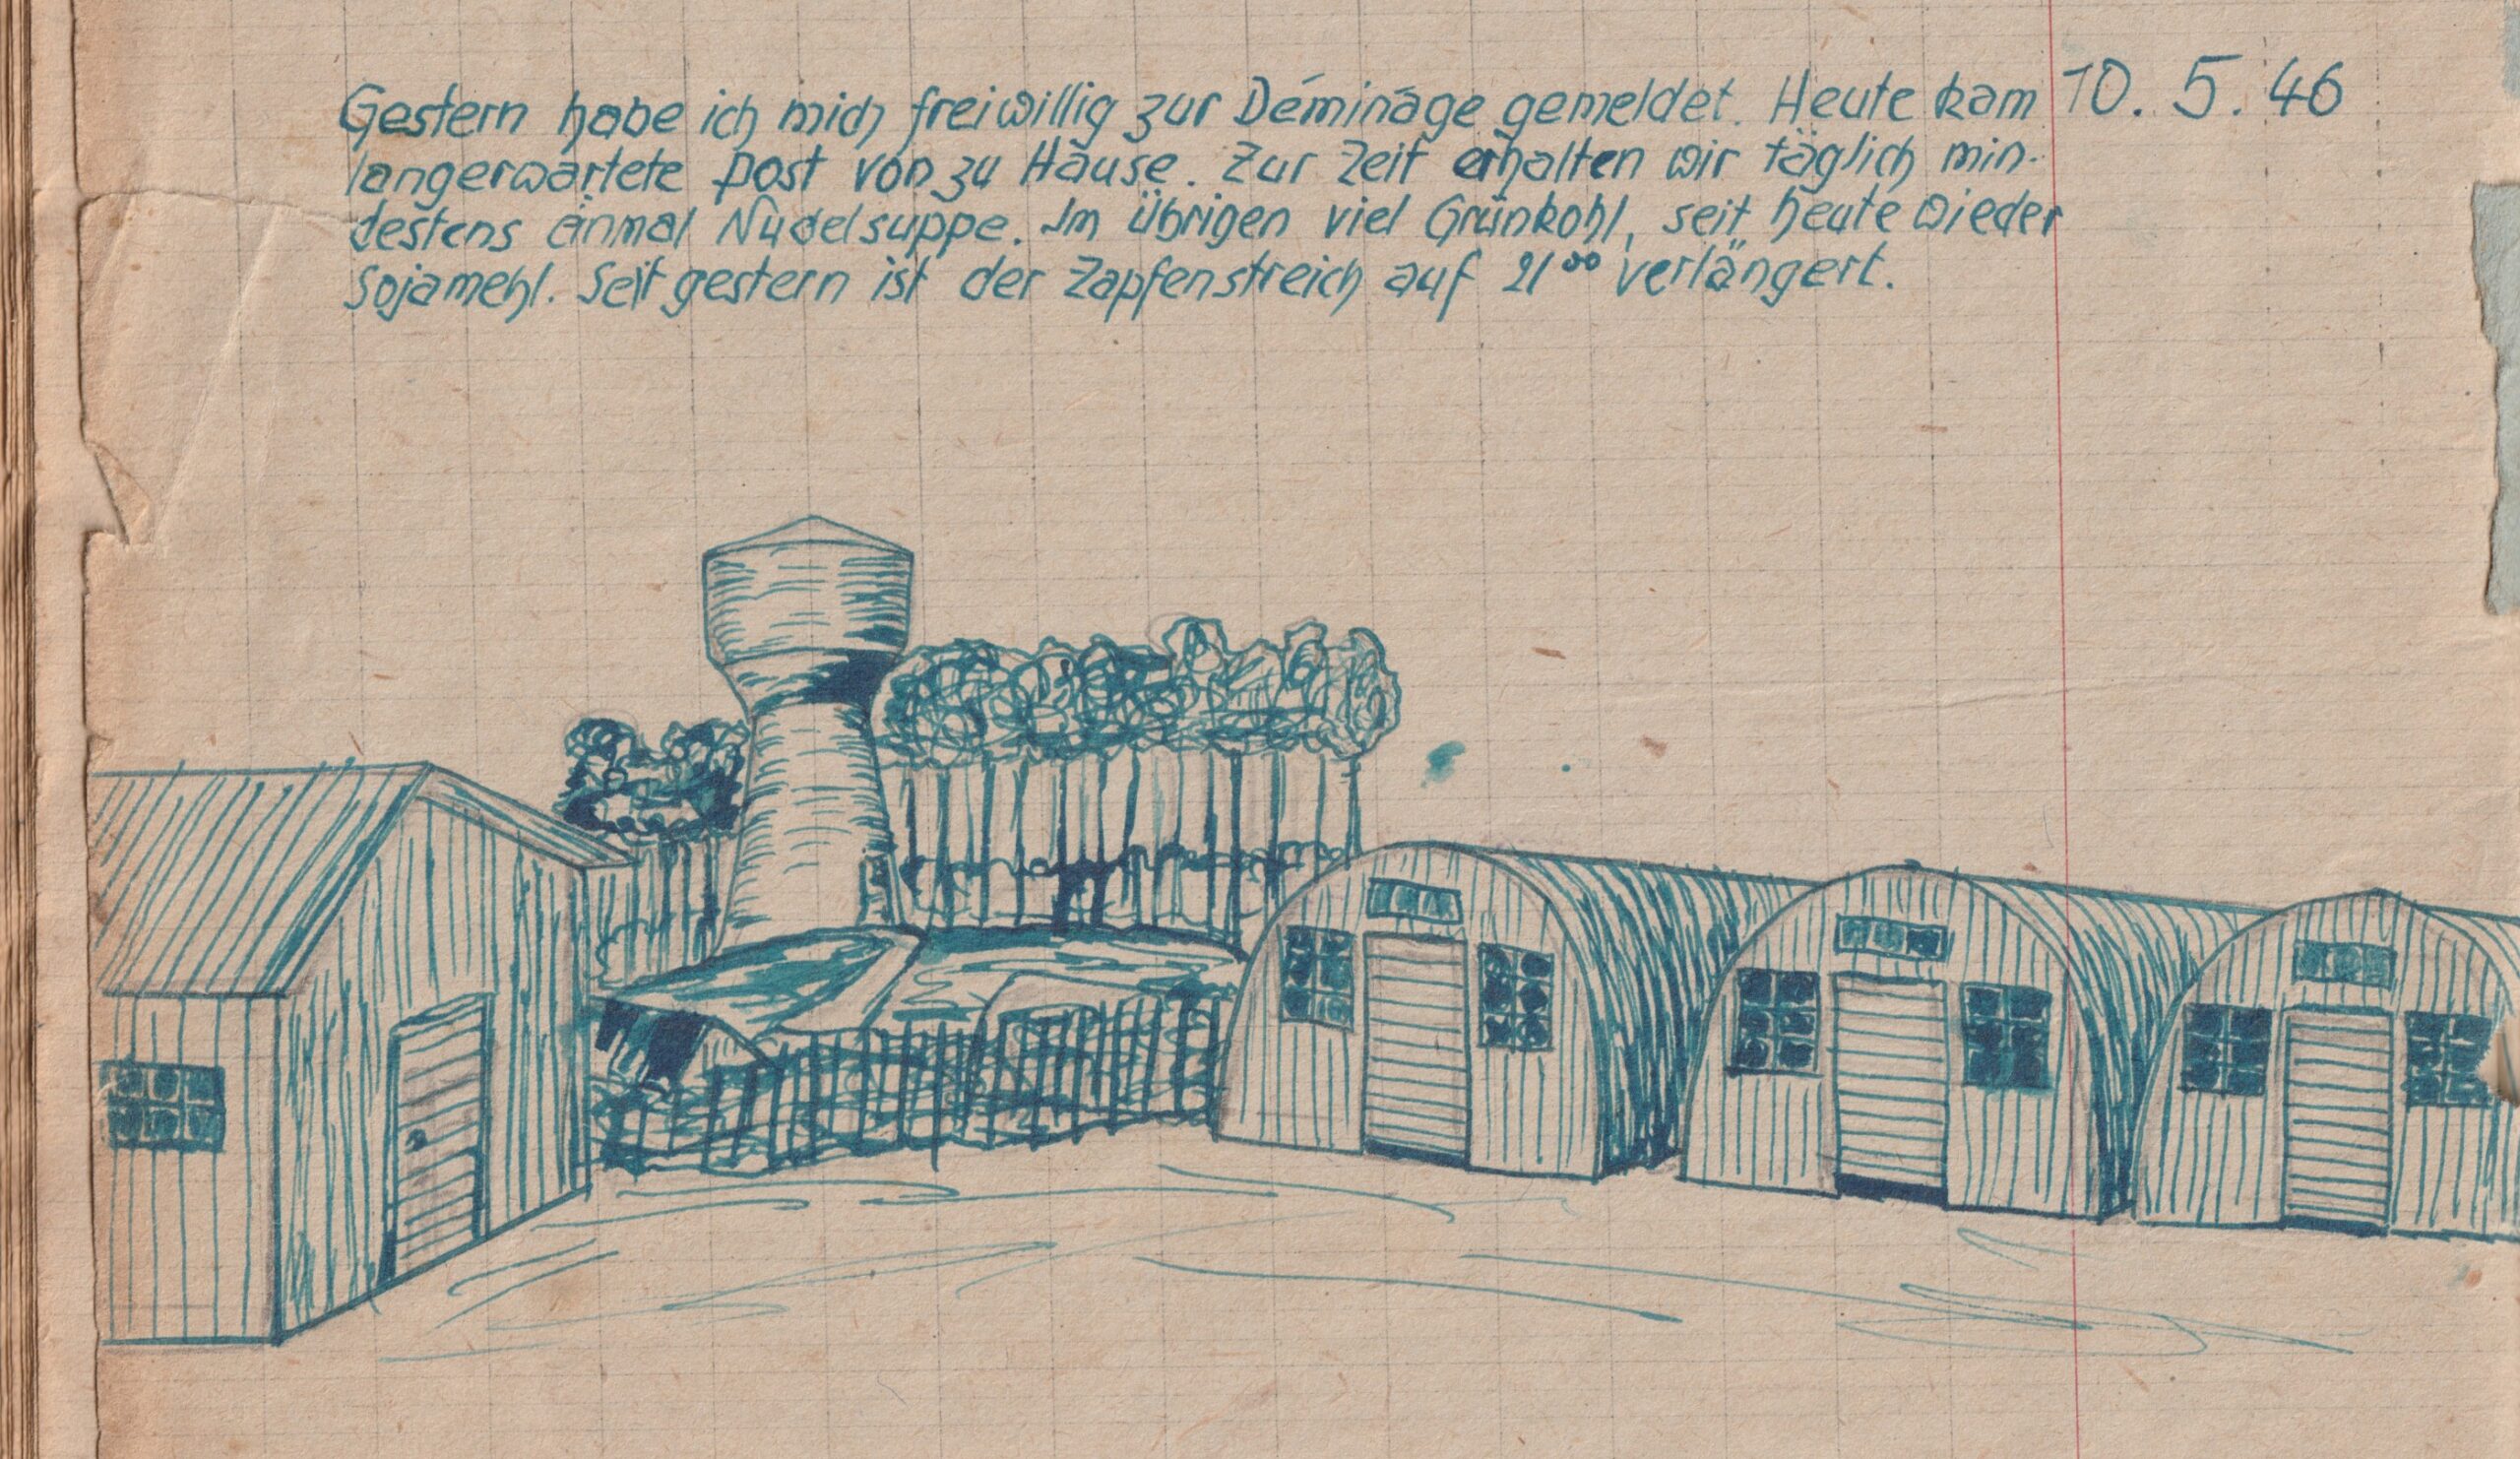 Gestern habe ich mich freiwillig zur Déminage gemeldet. Heute kam 10. 5. 46
langerwartete Post von zu Hause. Zur Zeit erhalten wir täglich min-
destens einmal Nudelsuppe. Im Übrigen viel Grünkohl, seit heute wieder
Sojamehl. Seit gestern ist der Zapfenstreich auf 21⁰⁰ verlängert.